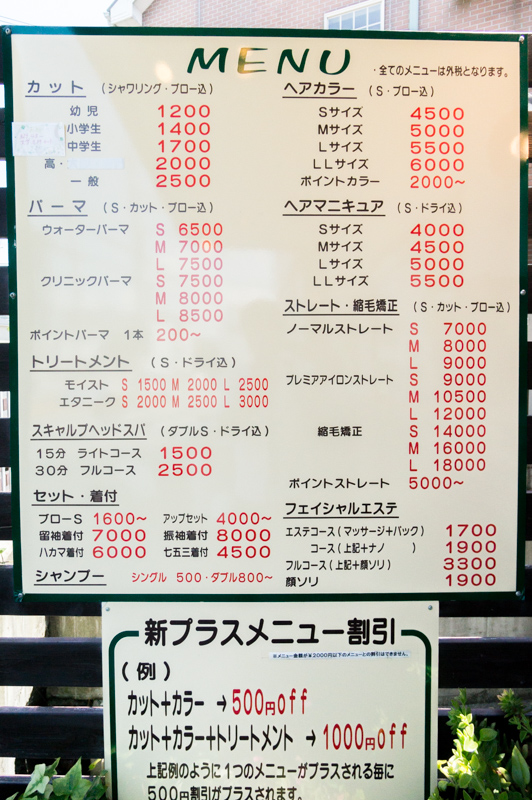 MENU
・全てのメニューは外税となります。
カット （シャワリング・ブロー込）
幼 児 1200
小学生 1400
中学生 1700
高・ 2000
一 般 2500
パーマ （S・カット・ブロー込）
ウォーターパーマ S 6500
M 7000
L 7500
クリニックパーマ S 7500
M 8000
L 8500
ポイントパーマ 1本 200～
トリートメント （S・ドライ込）
モイスト S 1500 M 2000 L 2500
エタニーク S 2000 M 2500 L 3000
スキャルプヘッドスパ （ダブルS・ドライ込）
15分 ライトコース 1500
30分 フルコース 2500
セット・着付
ブローS 1600～ アップセット 4000～
留袖着付 7000 振袖着付 8000
ハカマ着付 6000 七五三着付 4500
シャンプー シングル 500・ダブル800～
ヘアカラー （S・ブロー込）
Sサイズ 4500
Mサイズ 5000
Lサイズ 5500
LLサイズ 6000
ポイントカラー 2000～
ヘアマニキュア （S・ドライ込）
Sサイズ 4000
Mサイズ 4500
Lサイズ 5000
LLサイズ 5500
ストレート・縮毛矯正 （S・カット・ブロー込）
ノーマルストレート S 7000
M 8000
L 9000
プレミアアイロンストレート S 9000
M 10500
L 12000
縮毛矯正 S 14000
M 16000
L 18000
ポイントストレート 5000～
フェイシャルエステ
エステコース（マッサージ+パック） 1700
コース（上記+ナノ ） 1900
フルコース（上記+顔ソリ） 3300
顔ソリ 1900
新プラスメニュー割引
※メニュー金額が￥2000円以下のメニューとの割引はできません。
（例）
カット+カラー → 500円off
カット+カラー+トリートメント → 1000円off
上記例のように1つのメニューがプラスされる毎に
500円割引がプラスされます。